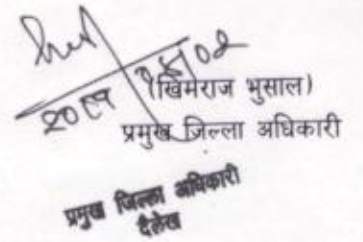 (खिमराज भुसाल)
प्रमुख जिल्ला अधिकारी
प्रमुख जिल्ला अधिकारी
दैलेख